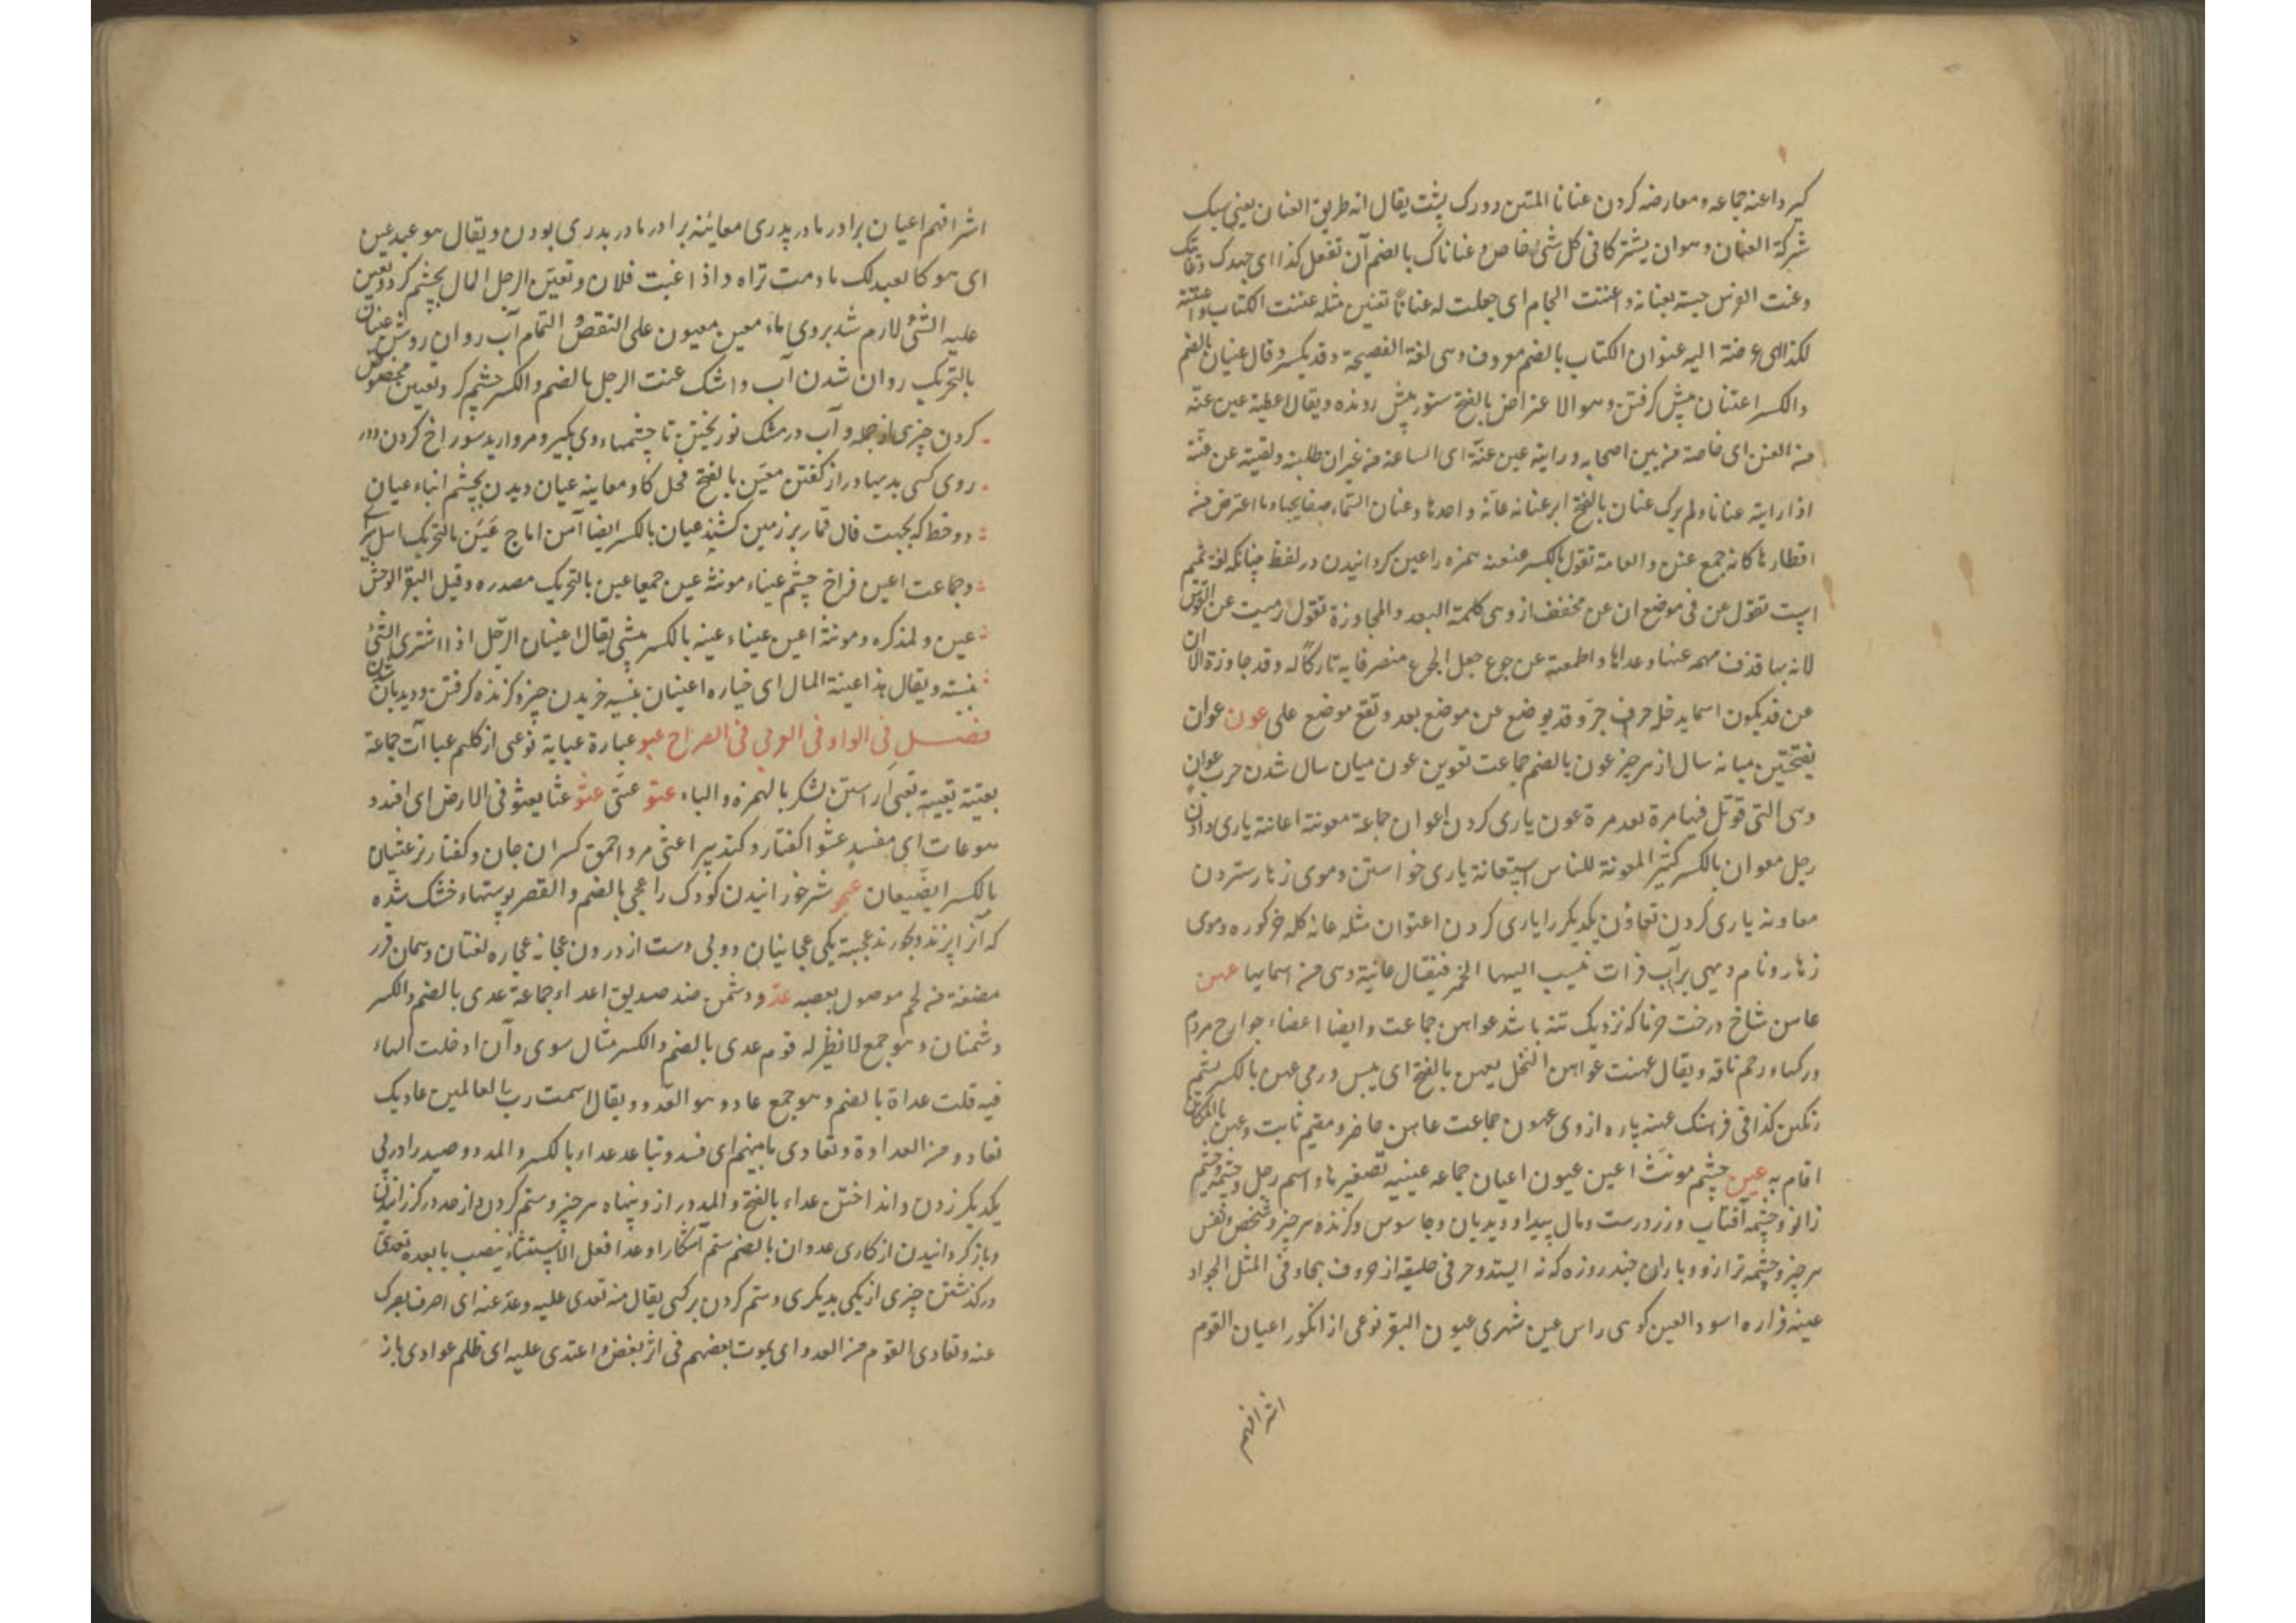 كيرد اعنه جماعه و معارضه كردن عنانا المتن دو رك پشت يقال انه طريق العنان يعنى سبك
شركة العنان و هو ان يشتركا فى كل شئ خاص عناناك بالضم آن تفعل كذا اى جهدك و غايتك
و عننت الفرس حبسته بعنانه و اعننت اللجام اى جعلت له عنانا تعنين مثله عننت الكتاب و اعننته
لكذا اى عرضته اليه عنوان الكتاب بالضم معروف و هى لغة الفصيحة و قد يكسر و قال عنيان بالضم
والكسر اعتنان پيش كرفتن و هو الاعتراض بالفتح ستور پيش رونده و يقال اعطيته عين عنّة
من العنن اى خاصة من بين اصحابه و رايته عين عنّة اى الساعة من غير ان طلبته و لقيته عن
اذا رايته عنانا و لم يرك عنان بالفتح ابر عنانه عانّه واحدها و عنان السّماء صفايحها و ما اعترض من
اقطارها كانه جمع عنن و العامة تقول بالكسر عنعنه همزه را عين كردانيدن در لفظ چنانكه لغة تميم
است تقول عن فى موضع ان عن مخفف از و هى كلمة البعد و المجاوزة تقول رميت عن القوس
لانه بها قذف سهمه عنها و عداها و اطعمته عن جوع جعل الجوع منصرفا به تاركا له و قد جاوزه الا ان
عن قد يكون اسما يدخله حرف جرّ و قد يوضع عن موضع بعد و تقع موضع على عون عوان
بفتحتين ميانه سال از هر چيز عون بالضم جماعت تعوين عون ميان سال شدن حرب عوان
و هى التى قوتل فيها مرة بعد مرة عون يارى كردن اعوان جماعة معونة اعانة يارى دادن
رجل معوان بالكسر كثير المعونة للناس استعانة يارى خواستن و موى زهار ستردن
معاونه يارى كردن تعاون يكديكر را يارى كردن اعتوان مثله عانه كله خر كوره و موى
زهار و نام ديهى بر آب فرات نسب اليها الخمر فيقال عانية و هى من اسمايها عهن
عاهن شاخ درخت خرما كه نزديك تنه باشد عواهن جماعت و ايضا اعضاء جوارح مردم
و ركهاء رحم ناقه و يقال عهنت عواهن النخل يعهن بالفتح اى يبس و رمى عهن بالكسر پشم
رنكين كذا فى فرهنك عهنه پاره از وى عهون جماعت عاهن حاضر و مقيم ثابت و عهن بالمكان
اقام به عين چشم مونث اعين عيون اعيان جماعه عيينه تصغيرها و اسم رجل و چشمه و چشم
زانو و چشمه آفتاب و زر درست و مال پيدا و ديدبان و جاسوس و كزنده هر چيز و شخص و نفس
هر چيز و چشمه ترازو و باران چند روزه كه نه ايستد و حرفى حلقيه از حروف تهجا و فى المثل الجواد
عينه فراره اسود العين كوهى راس عين شهرى عيون البقر نوعى از انكور اعيان القوم
اشرافهم
اشرافهم اعيان برادر مادر پدرى معاينه برادر مادر پدرى بودن و يقال هو عبد عين
اى هو كالعبد لك ما دمت تراه و اذا غبت فلا و تعيّن الرجل المال بچشم كرد و تعين
عليه الشئ لازم شد بروى ماء معين معيون على النقص و التمام آب روان روشن عينان
بالتحريك روان شدن آب و اشك عنت الرجل بالضم و الكسر چشم كرد و تعيين مخصوص
كردن چيزى از جمله و آب در مشك نو ريختن تا چشمهاء وى بكيرد و مرواريد سوراخ كردن و در
روى كسى بديها دراز كفتن معيّن بالفتح فحل كاو معاينه عيان ديدن بچشم ابناء عيان
دو خط كه بجهت فال قمار بر زمين كشند عيان بالكسر ايضا آهن اماج عَيَن بالتحريك اهل سراى
و جماعت اعين فراخ چشم عيناء مونثه عين جمعا عين بالتحريك مصدره و قيل البقر الوحش
عين و لمذكره و مونثه اعين عيناء عينه بالكسر پيشى يقال اعتان الرّجل اذا اشترى الشئ
بنسيه و يقال هذا عينة المال اى خياره اعتيان بنسيه خريدن چيز و كزنده كرفتن و ديدبان شدن
فصل فى الواو فى العربى فى الصراح عبو عباءة عباية نوعى از كليم عباآت جماعة
تعبية تعبّى آراستن لشكر بالهمزه و الياء عتو عتى عثو عثا يعثو فى الارض اى افسد و
هو عاث اى مفسد عثوا كفتار و كنده پير اعثى مرد احمق كسران جان و كفتار نر عثيان
بالكسر ايضا ضبعان عجو شير خورانيدن كودك را عجى بالضم و القصر پوستهاء خشك شده
كه آنرا پزند و بخورند عجيه يكى عجايتان دو پى دست از درون عجايه عجاوه لغتان و هما ن قدر
مضغة من لحم موصول بعصبه عدو و دشمن ضد صديق اعداء جماعة عدى بالضم و الكسر
دشمنان و هو جمع لا نظير له قوم عدى بالضم و الكسر مثال سوى و آن ادخلت الهاء
فيه قلت عداة بالضم و هو جمع عاد و هو العدو و يقال اشمت رب العالمين عاديك
تعاد و من العداوة و تعادى ما بينهم اى فسد و تباعد عداء بالكسر و المد دو صيد را در پى
يكديكر زدن و انداختن عداء بالفتح و المد دراز و پنهاء هر چيز و ستم كردن و از حد در كزرانيدن
و باز كردانيدن از كارى عدوان بالضم ستم آشكارا و عدا فعل الاستثناء ينصب ما بعده تعدى
در كذشتن چيزى از يكى بديكرى و ستم كردن بر كسى يقال منه تعدى عليه و عدّ عنه اى اصرف بصرك
عنه و تعادى القوم من العدو اى يموت بعضهم فى اثر بعض و اعتدى عليه اى ظلم عوادى باز